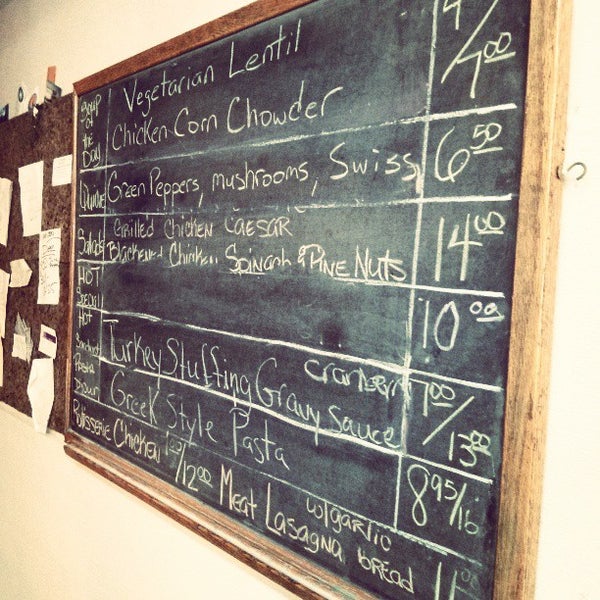 Soup of the Day Vegetarian Lentil 4/7.00
Chicken Corn Chowder
Quiche Green Peppers, mushrooms, Swiss 6.50
Salads Grilled Chicken CAESAR 14.00
Blackened Chicken Spinach & PINE NUTS
HOT Special 10.00
HOT Sandwich Turkey Stuffing Gravy cranberry sauce 7.00/13.00
Pasta Greek Style Pasta 8.95/16
Rotisserie Chicken 7.00/12.00 Meat Lasagna w/garlic bread